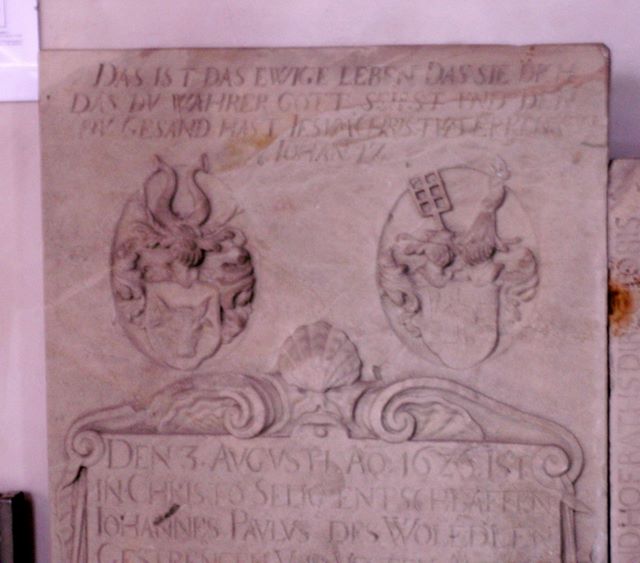 DAS IST DAS EWIGE LEBEN DAS SIE DICH
DAS DV WAHRER GOTT SEIEST VND DEN
DV GESAND HAST IESVM CHRISTVM ERKENNEN
IOHAN 17
DEN 3. AVGVSTI. AO. 1626 IST
IN CHRISTO SELIG ENTSCHLAFFEN
IOHANNES PAVLVS DES WOLEDLEN
GESTRENGEN